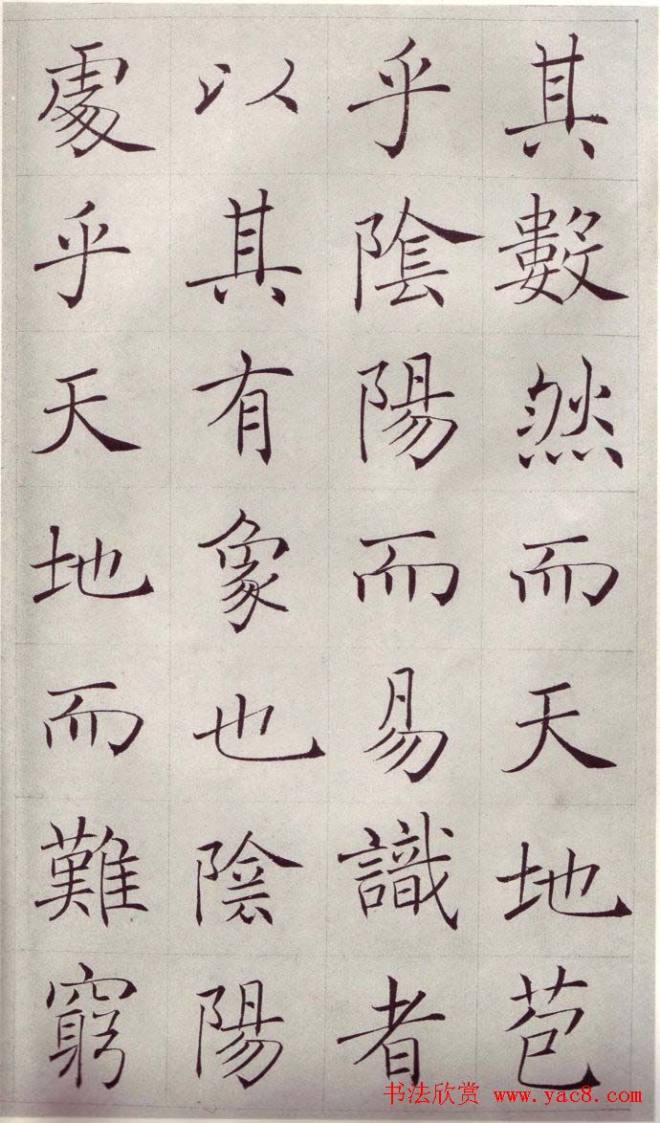 其數然而天地苞
乎陰陽而易識者
以其有象也陰陽
處乎天地而難窮
书法欣赏 www.yac8.com